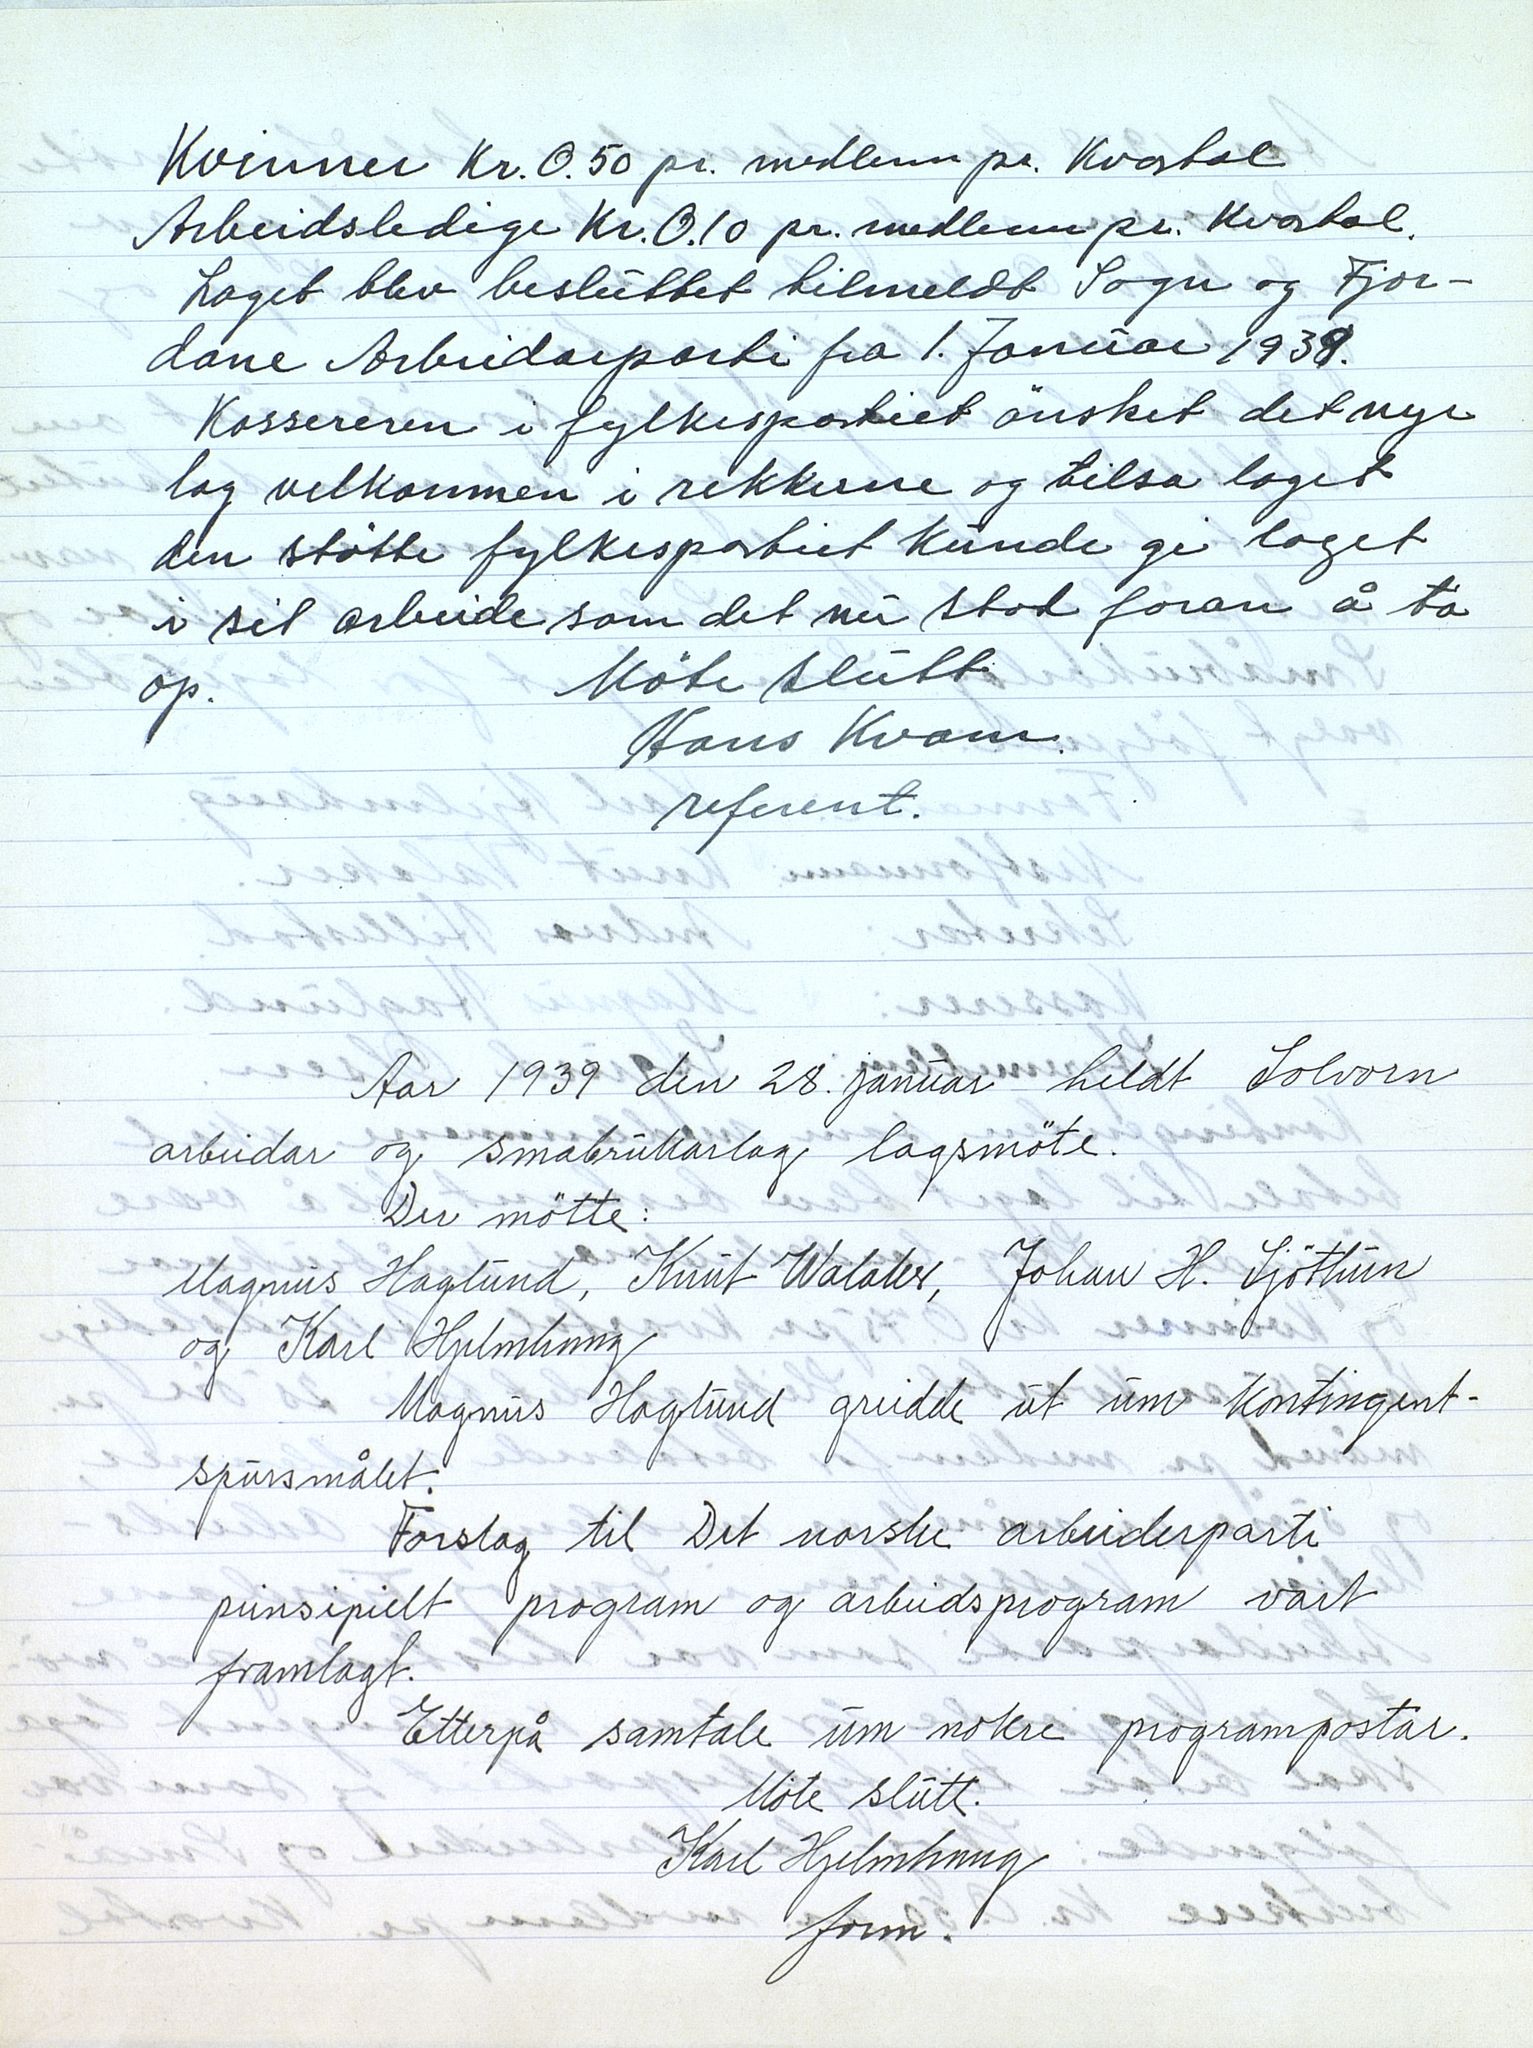 Kvinner Kr. 0.50 pr. medlem pr. Kvartal
Arbeidsledige Kr. 0.10 pr. medlem pr. Kvartal.
Laget blev besluttet tilmeldt Sogn og Fjor-
dane Arbeidarparti fra 1. Januar 1939.
Kassereren i fylkespartiet önsket det nye
lag velkommen i rekkerne og tilsa laget
den stötte fylkespartiet kunde gi laget
i sit arbeide som det nu stod foran å ta
op. Möte slutt
Hans Kvam.
referent.
Aar 1939 den 28. januar heldt Solvorn
arbeidar og småbrukarlag lagsmöte.
Der mötte:
Magnus Haglund, Knut Walaker, Johan H. Sjöthun
og Karl Hjelmhaug
Magnus Haglund greidde ut um kontingent-
spursmålet.
Forslag til Det norske arbeiderparti
prinsipielt program og arbeidsprogram vart
framlagt.
Etterpå samtale um nokre programpostar.
Möte slutt.
Karl Hjelmhaug
form.